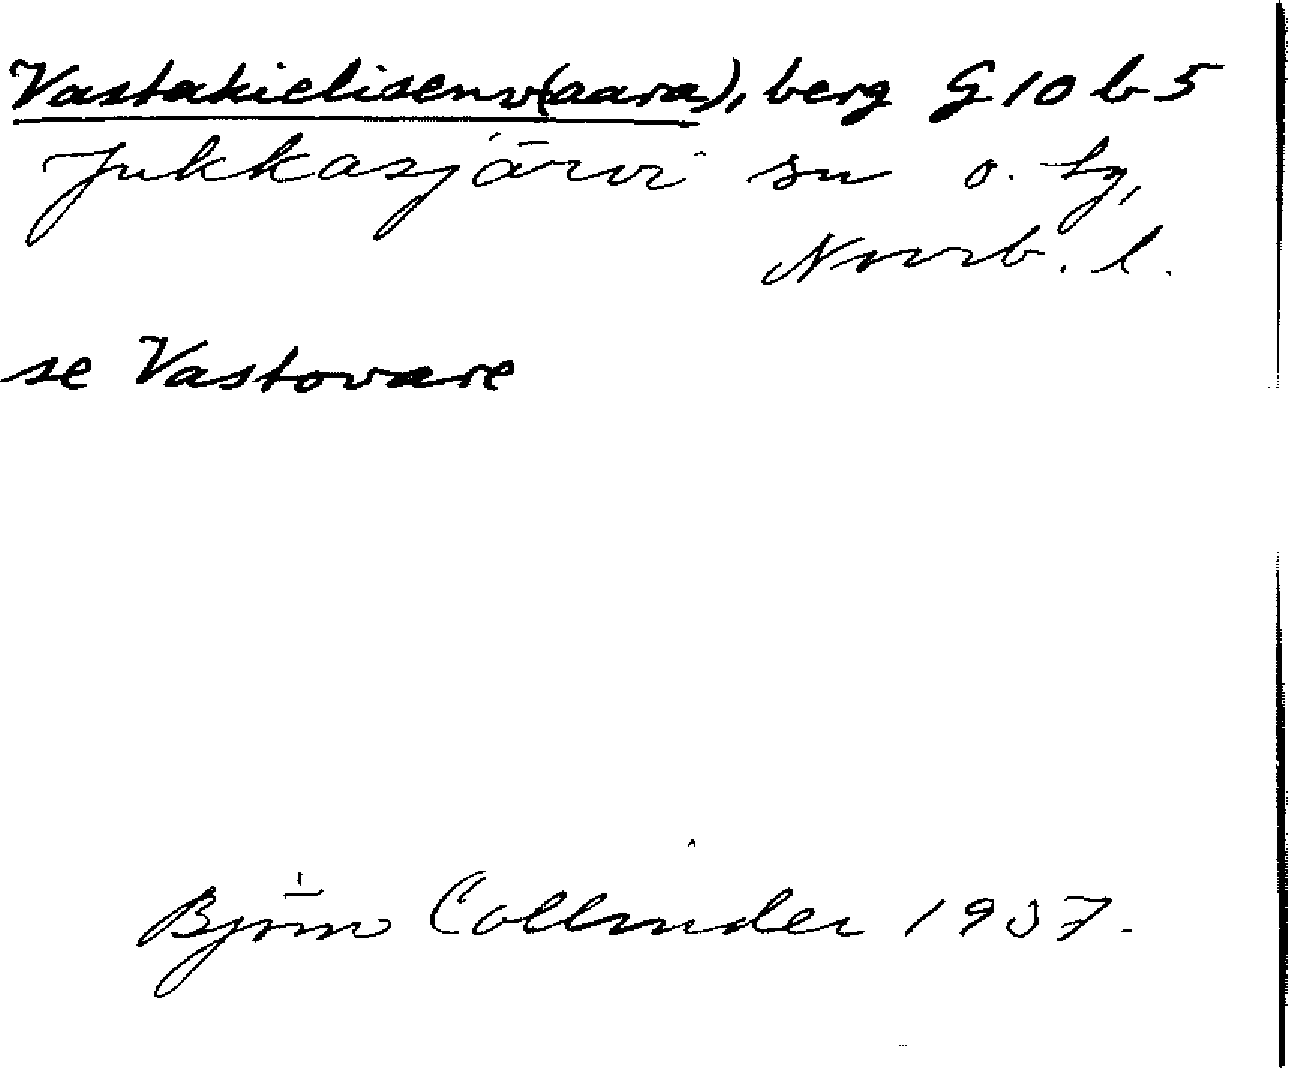 Vastakielisenv(aara), berg G 10 b 5
Jukkasjärvi sn o. tg,
Norrb. l.
se Vastovare
Björn Collinder 1937.